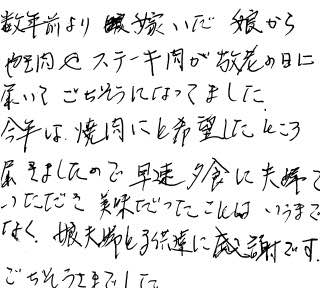 数年前より 嫁いだ 娘から
焼肉やステーキ肉が敬老の日に
届いて ごちそうになってました
今年は、焼肉にと希望したところ
届きましたので 早速 夕食に 夫婦で
いただき 美味だったことは いうまで
なく、娘夫婦と子供達に感謝です。
ごちそうさまでした